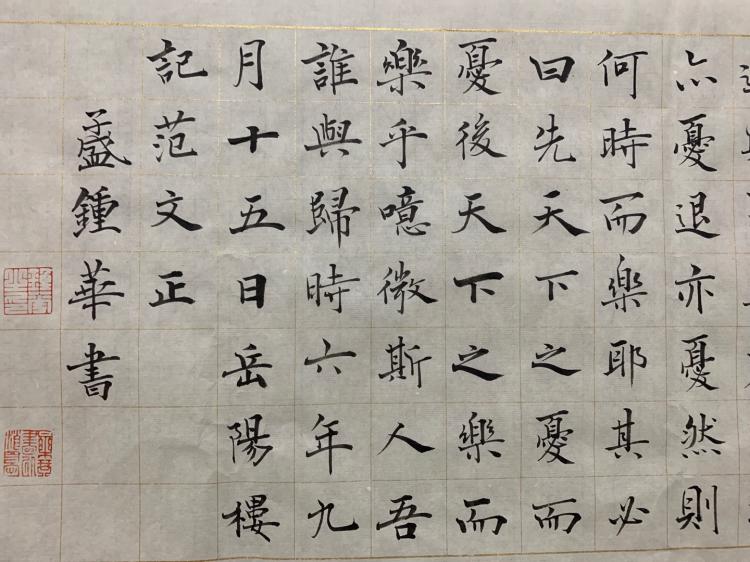 亦憂退亦憂然則
何時而樂耶其必
曰先天下之憂而
憂後天下之樂而
樂乎噫微斯人吾
誰與歸時六年九
月十五日岳陽樓
記范文正
鍾華書